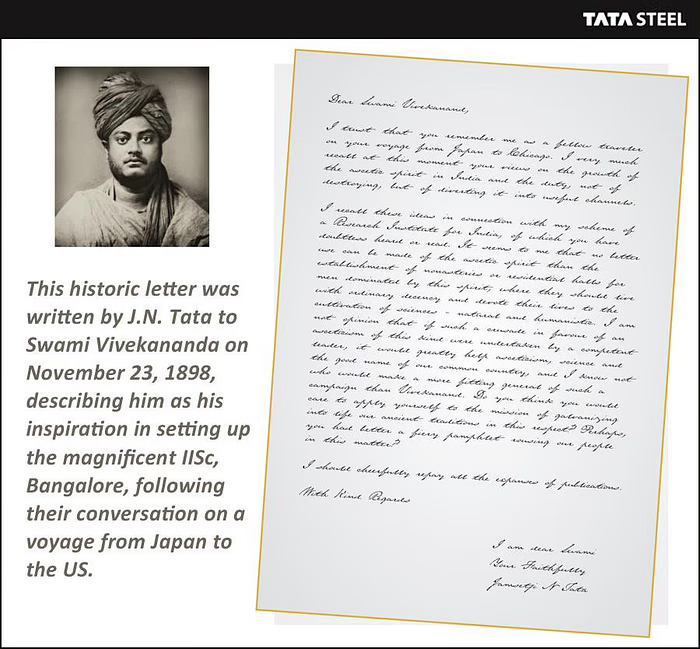 TATA STEEL
This historic letter was
written by J.N. Tata to
Swami Vivekananda on
November 23, 1898,
describing him as his
inspiration in setting up
the magnificent IISc,
Bangalore, following
their conversation on a
voyage from Japan to
the US.
Dear Swami Vivekanand,
I trust that you remember me as a fellow traveler
on your voyage from Japan to Chicago. I very much
recall at this moment your views on the growth of
the ascetic spirit in India and the duty, not of
destroying, but of diverting it into useful channels.
I recall these ideas in connection with my scheme of
a Research Institute for India, of which you have
doubtless heard or read. It seems to me that no better
use can be made of the ascetic spirit than the
establishment of monasteries or residential halls for
men dominated by this spirit, where they should live
with ordinary decency and devote their lives to the
cultivation of sciences - natural and humanistic. I am
not opinion that of such a crusade in favour of an
asceticism of this kind were undertaken by a competent
leader, it would greatly help asceticism, science and
the good name of our common country; and I know not
who would make a more fitting general of such a
campaign than Vivekanand. Do you think you would
care to apply yourself to the mission of galvanizing
into life our ancient traditions in this respect? Perhaps,
you had better a fiery pamphlet rousing our people
in this matter?
I should cheerfully repay all the expanses of publications.
With Kind Regards
I am dear Swami
Your Faithfully
Jamsetji N Tata